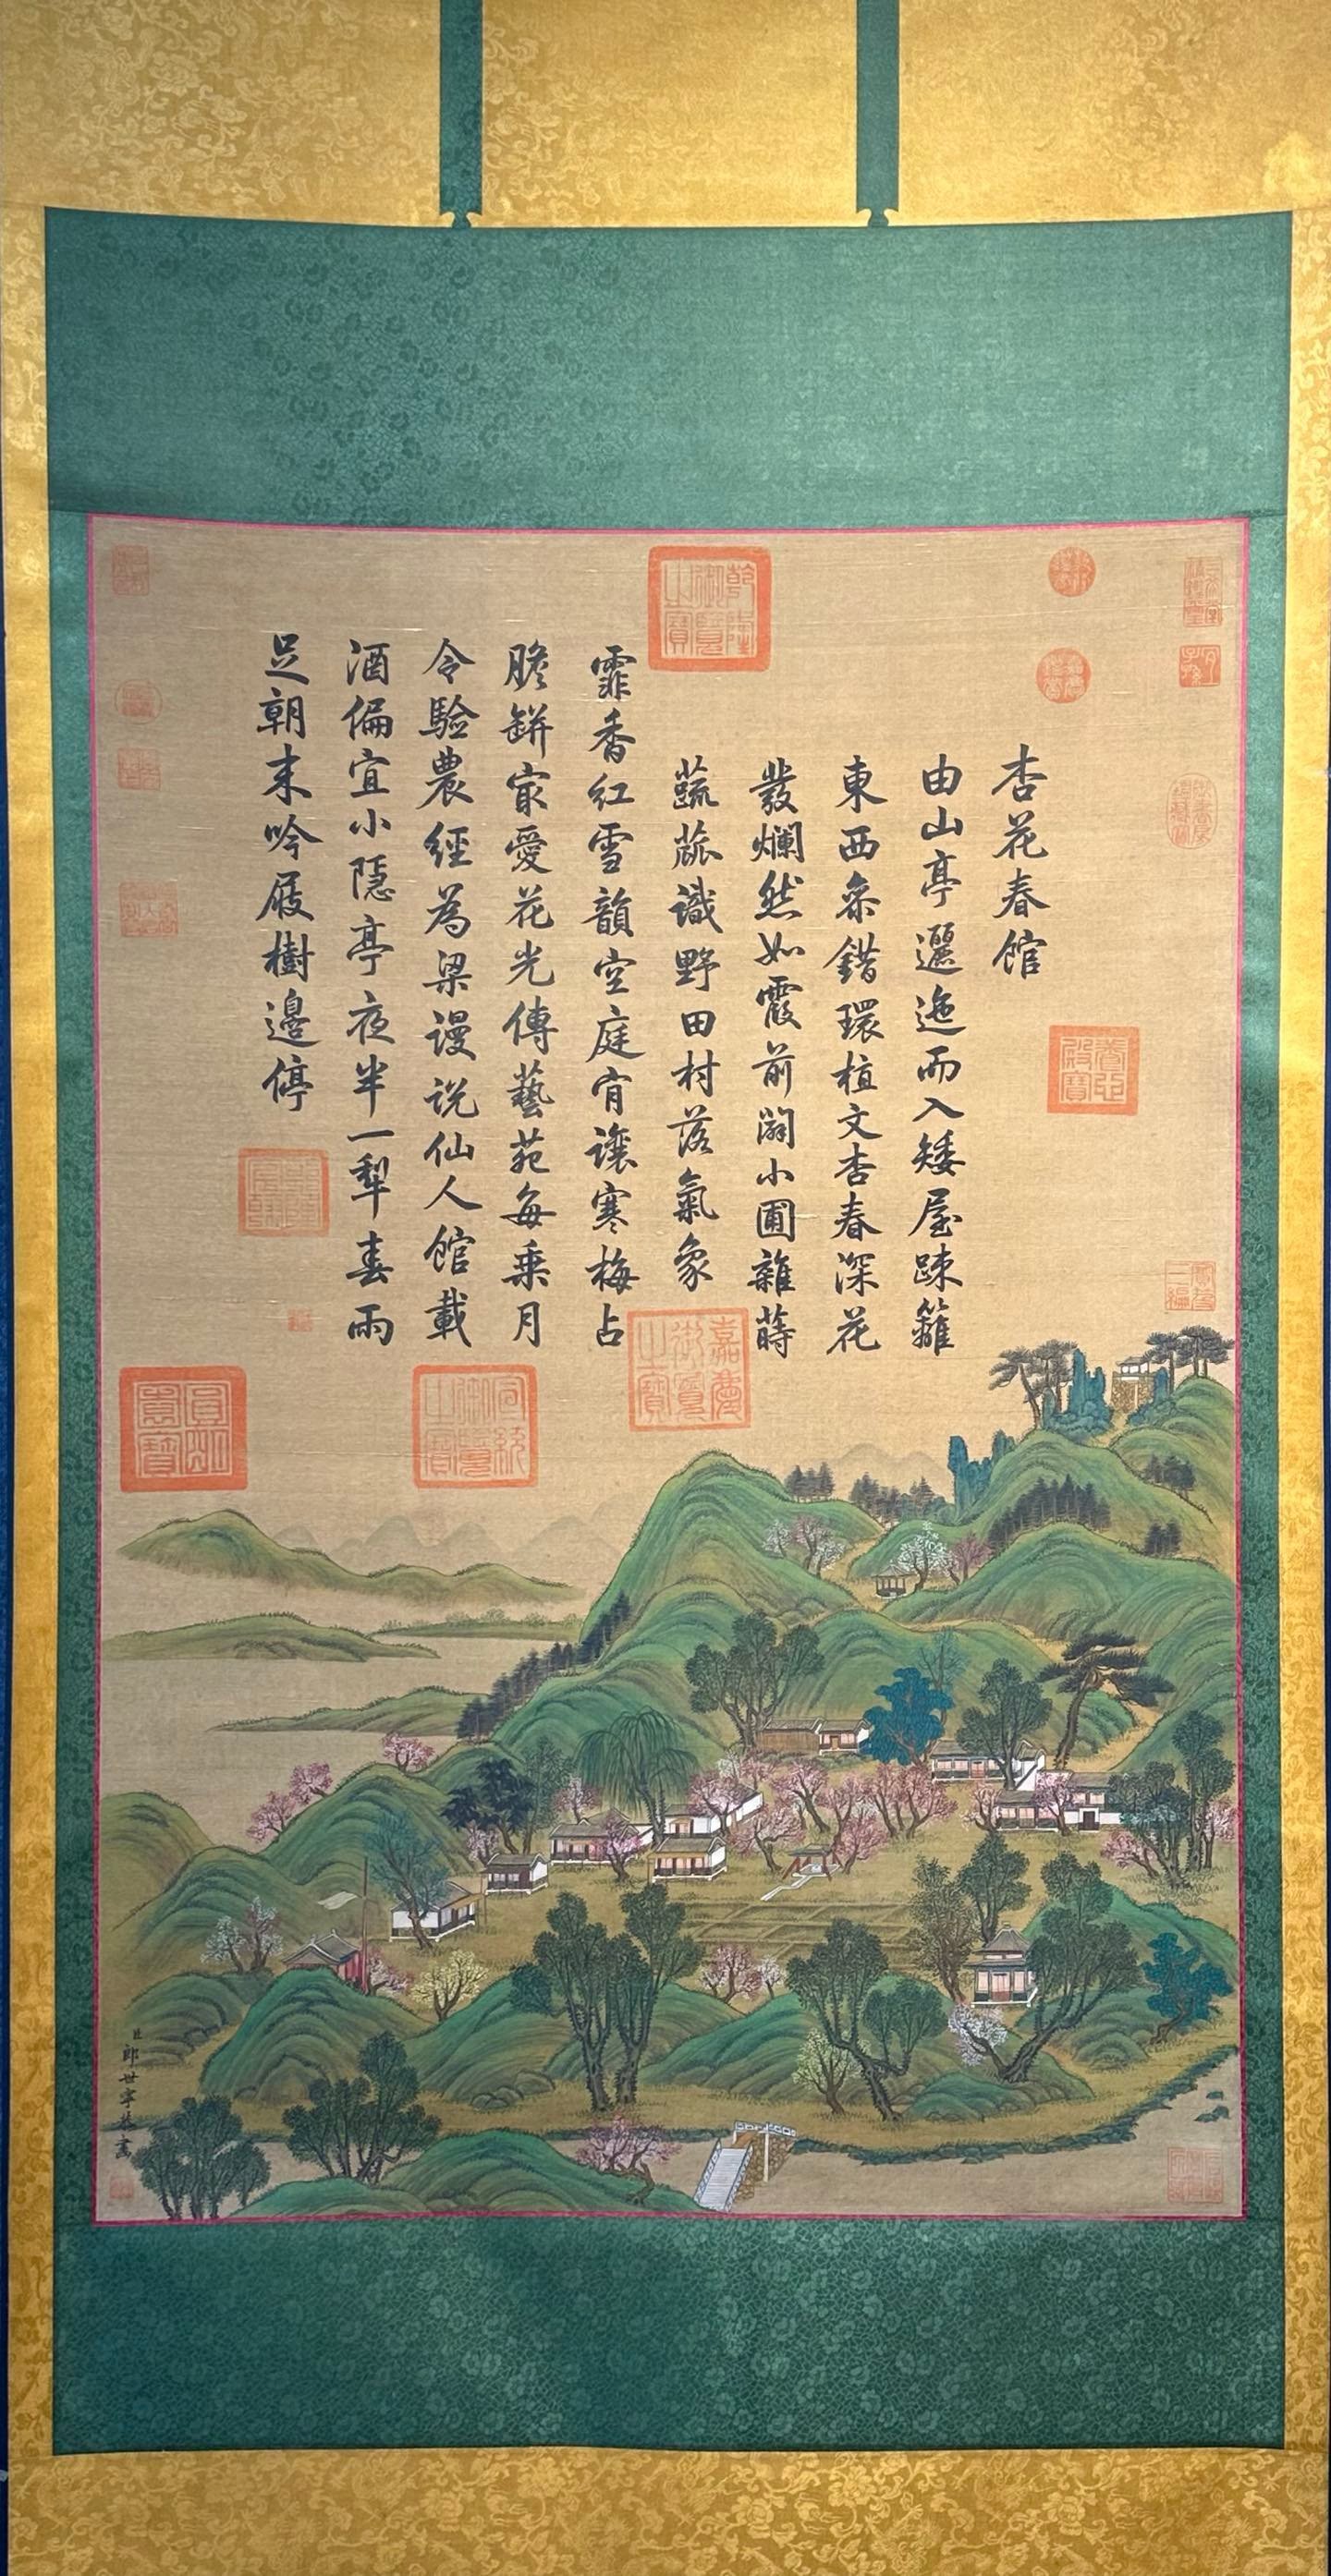 杏花春館
由山亭邐迤而入矮屋疎籬
東西叅錯環植文杏春深花
發爛然如霞前闢小圃雜蒔
蔬蓏識野田村落氣象
霏香紅雪韻空庭肯讓寒梅占
膽缾㝡愛花光傳藝苑每乗月
令驗農經為梁謾説仙人館載
酒偏宜小隱亭夜半一犁春雨
足朝来吟屐樹邊停
乾隆御覽之寶
養心殿寶
嘉慶御覽之寶
同治御覽之寶
圓明園寶
三希堂精鑑璽
宜子孫
臣郎世寧恭畫